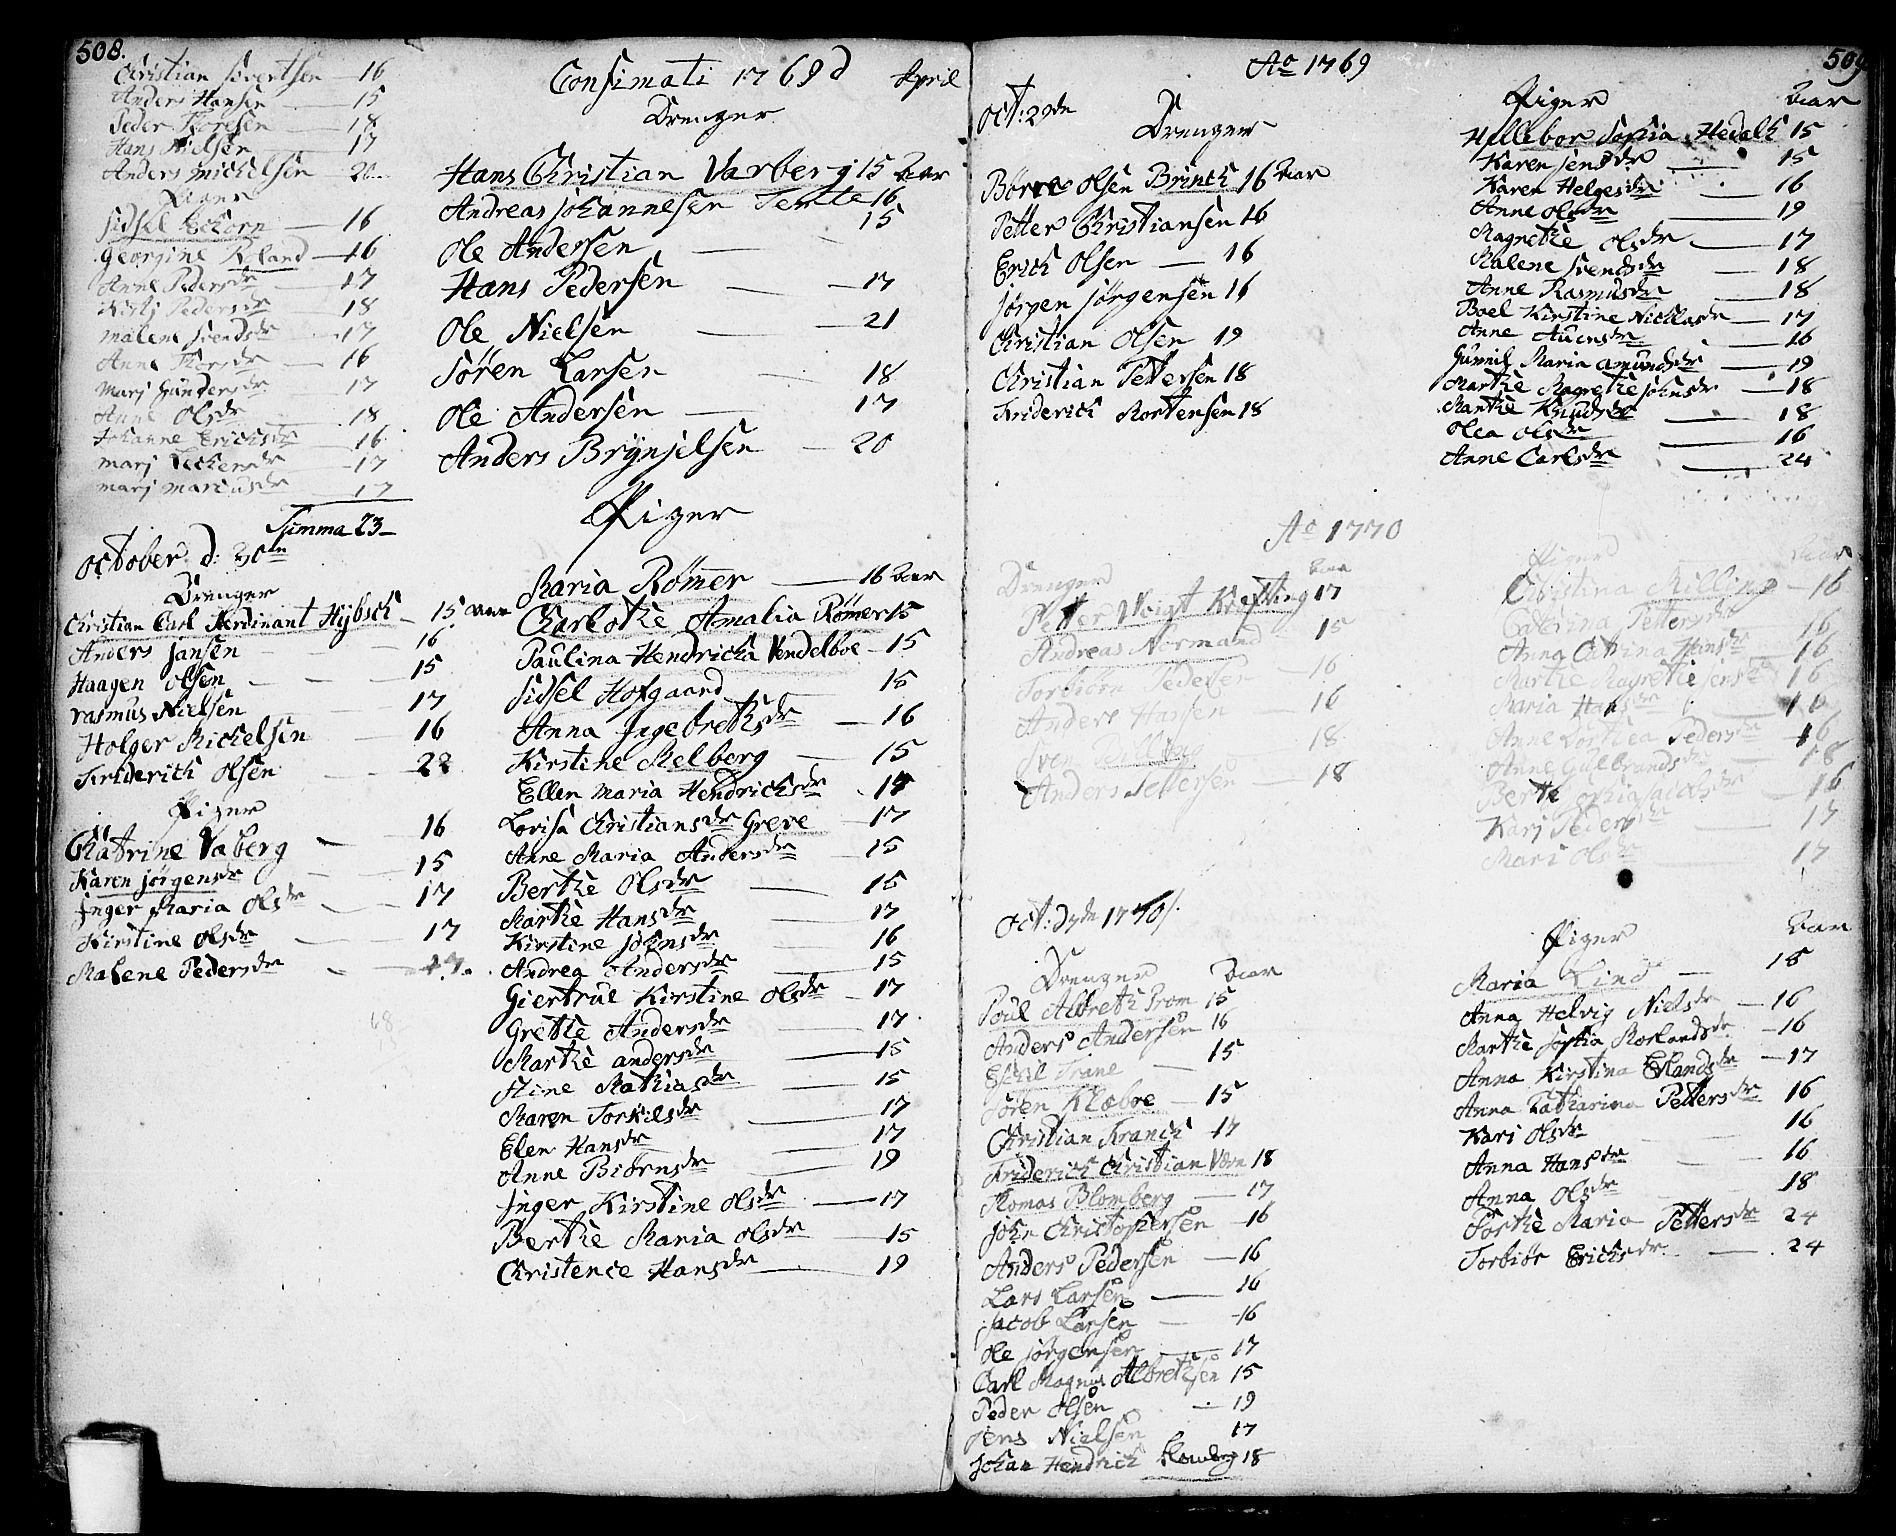 508.
Christian Sivertsen — 16
Anders Hansen — 15
Peder Thoresen — 18
Hans Nielsen — 17
Anders Mickelsen 20
Piger
Sidsel Eckorn — 16
Georgine Reland — 16
Anne Pedersdr — 17
Kirstj Pedersdr — 18
Malene Svendsdr — 17
Anne Thorsdr — 16
Marj Gundersdr — 17
Anne Olsdr — 18
Johanne Ericksdr — 16
Marj — 17
Marj Marcusdr — 17
Summa 23 —
October d: 30te
Drenger
Christian Carl Ferdinant Hybsch — 15 Aar
Anders Jansen — 16
Haagen Olsen — 15
Rasmus Nielsen — 17
Holger Mickelsen — 16
Friderich Olsen — 22
Piger
Chatrine Vaberg — 16
Karen Jørgensdr — 15
Inger Maria Olsdr — 17
Kirstine Olsdr — 17
Malene Pedersdr — 17
Confirmati 1769 d April
Drenger
Hans Christian Varberg 15 Aar
Andreas Johannesen Tente 16
Ole Andersen — 15
Hans Pedersen — 17
Ole Nielsen — 21
Søren Larsen — 18
Ole Andersen — 17
Anders Brynjelsen — 20
Piger
Maria Rømer — 16 Aar
Charlothe Amalia Rømer 15
Paulina Hendricha Vendelboe — 15
Sidsel Hofgaard — 15
Anna Ingebrethsdr — 16
Kirstine Melberg — 15
Ellen Maria Hendricksdr 17
Lovisa Christiansdr Greve — 17
Anne Maria Andersdr — 15
Berthe Olsdr — 15
Marthe Hansdr — 17
Kirstine Johnsdr — 16
Andrea Andersdr — 15
Giertrue Kirstine Olsdr — 17
Grethe Andersdr — 17
Marthe Andersdr — 15
Stine Mathiasdr — 15
Maren Torkilsdr — 17
Elen Hansdr — 17
Anne Biørnsdr — 19
Inger Kirstine Olsdr — 17
Berthe Maria Olsdr — 15
Christence Hansdr — 19
Ao 1769
509
Oct: 29de
Drenger
Børre Olsen Brinch 16 Aar
Petter Christiansen 16
Erich Olsen — 16
Jørgen Jørgensen 16
Christian Olsen 19
Christian Pettersen 18
Friderich Mortensen 18
Piger Aar
Hellebor Sophia Hedalh 15
Karen Jensdr — 15
Karen Helgesdr — 16
Anne Olsdr — 19
Magrethe Olsdr — 17
Malene Svendsdr — 18
Anne Rasmusdr — 18
Boel Kirstine Nicklasdr — 17
Anne Auensdr — 16
Gunnil Maria Amundsdr — 19
Marthe Magrethe Johnsdr — 18
Marthe Knudsdr — 18
Olea Olsdr — 16
Anne Carlsdr — 24
Ao 1770
Drenger Aar
Petter Voigt Krefting 17
Andreas Normand — 15
Torbiørn Pedersen — 16
Anders Hansen — 16
Sven — 18
Anders Pettersen — 18
Piger Aar
Christina Milling — 16
Cathrina Pettersdr — 16
Anna Catrina Hansdr — 16
Marthe Magrethe Jensdr 16
Maria Hansdr — 16
Anne Dorthea Pedersdr — 16
Anne Gulbrandsdr — 18
Berthe Sophia Jacobsdr — 16
Karj Pedersdr — 17
Mari Olsdr — 17
Oct: d 7de 1770/.
Drenger Aar
Poul Albreth Prom 15
Anders Andersen 16
Eschil Trane — 15
Søren Klæbre — 15
Christian Kranch 17
Friderich Christian Værn 18
Thomas Blomberg — 17
John Christophersen — 16
Anders Pedersen — 16
Lars Larsen — 16
Jacob Larsen — 16
Ole Jørgensen — 17
Carl Magnus Albrethsen 15
Peder Olsen — 19
Jens Nielsen 17
Johan Hendrich 18
Piger Aar
Maria Lind — 15
Anna Helvig Nielsdr — 16
Marthe Sophia Morlandsdr — 16
Anna Kirstina Erlandsdr — 17
Anna Catharina Pettersdr 16
Kari Olsdr — 16
Anna Hansdr — 16
Anna Olsdr — 18
Dorthe Maria Pettersdr 24
Torbiør Ericksdr — 24